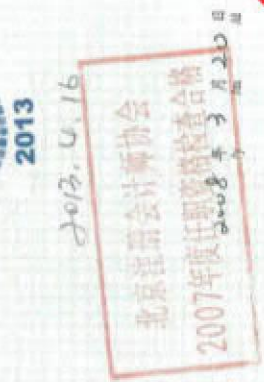 2013
2013.4.16
北京注册会计师协会
2007年度任职资格检查合格
2008年3月20日